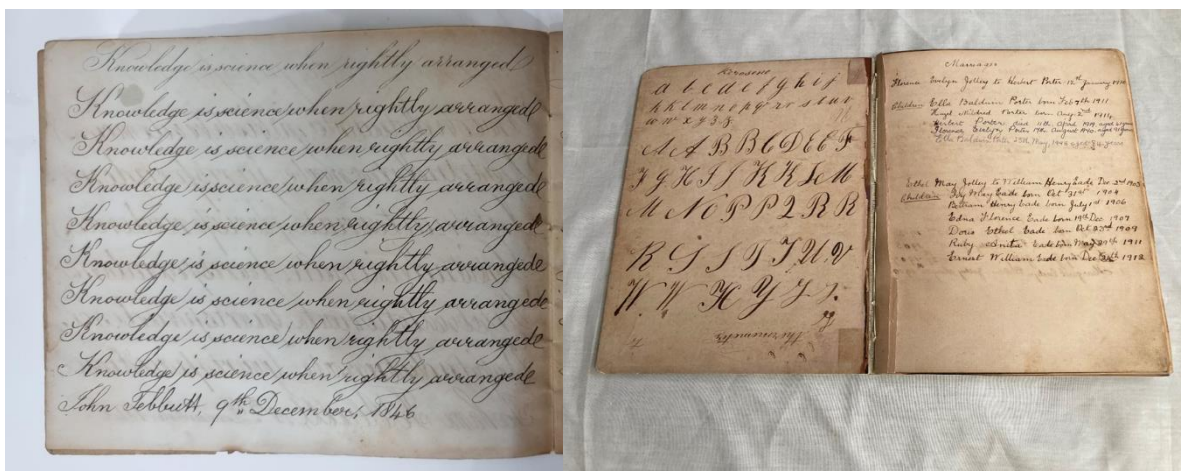 Knowledge is science when rightly arranged
Knowledge is science when rightly arranged
Knowledge is science when rightly arranged
Knowledge is science when rightly arranged
Knowledge is science when rightly arranged
Knowledge is science when rightly arranged
Knowledge is science when rightly arranged
Knowledge is science when rightly arranged
Knowledge is science when rightly arranged
John Tebbutt, 9th December, 1846
Kerosene
a b c d e f g h i j
k k l m n o p q r s t u v
w w x y z
A A B B C D E E F
I J K K L M
M N O P P Q R R
R S S T T U V
W W X Y Z
Thermometer
Marriages
Florence Evelyn Jolley to Herbert Porter 12th January 1910
Children Ella Baldwin Porter born Feb 7th 1911
Mildred Porter born Aug 2nd 1914
Herbert Porter died 4th April 1919 aged
Florence Evelyn Porter 19th August 1940 aged
Ella Baldwin 25th May
Ethel May Jolley to William Henry Eade Dec 2nd 1903
Children Ivy May Eade born Oct 31st 1904
Bertram Henry Eade born July 1st 1906
Edna Florence Eade born 19th Dec 1907
Doris Ethel Eade born Oct 23rd 1909
Ruby Eade born May 29th 1911
Ernest William Eade born Dec 1912